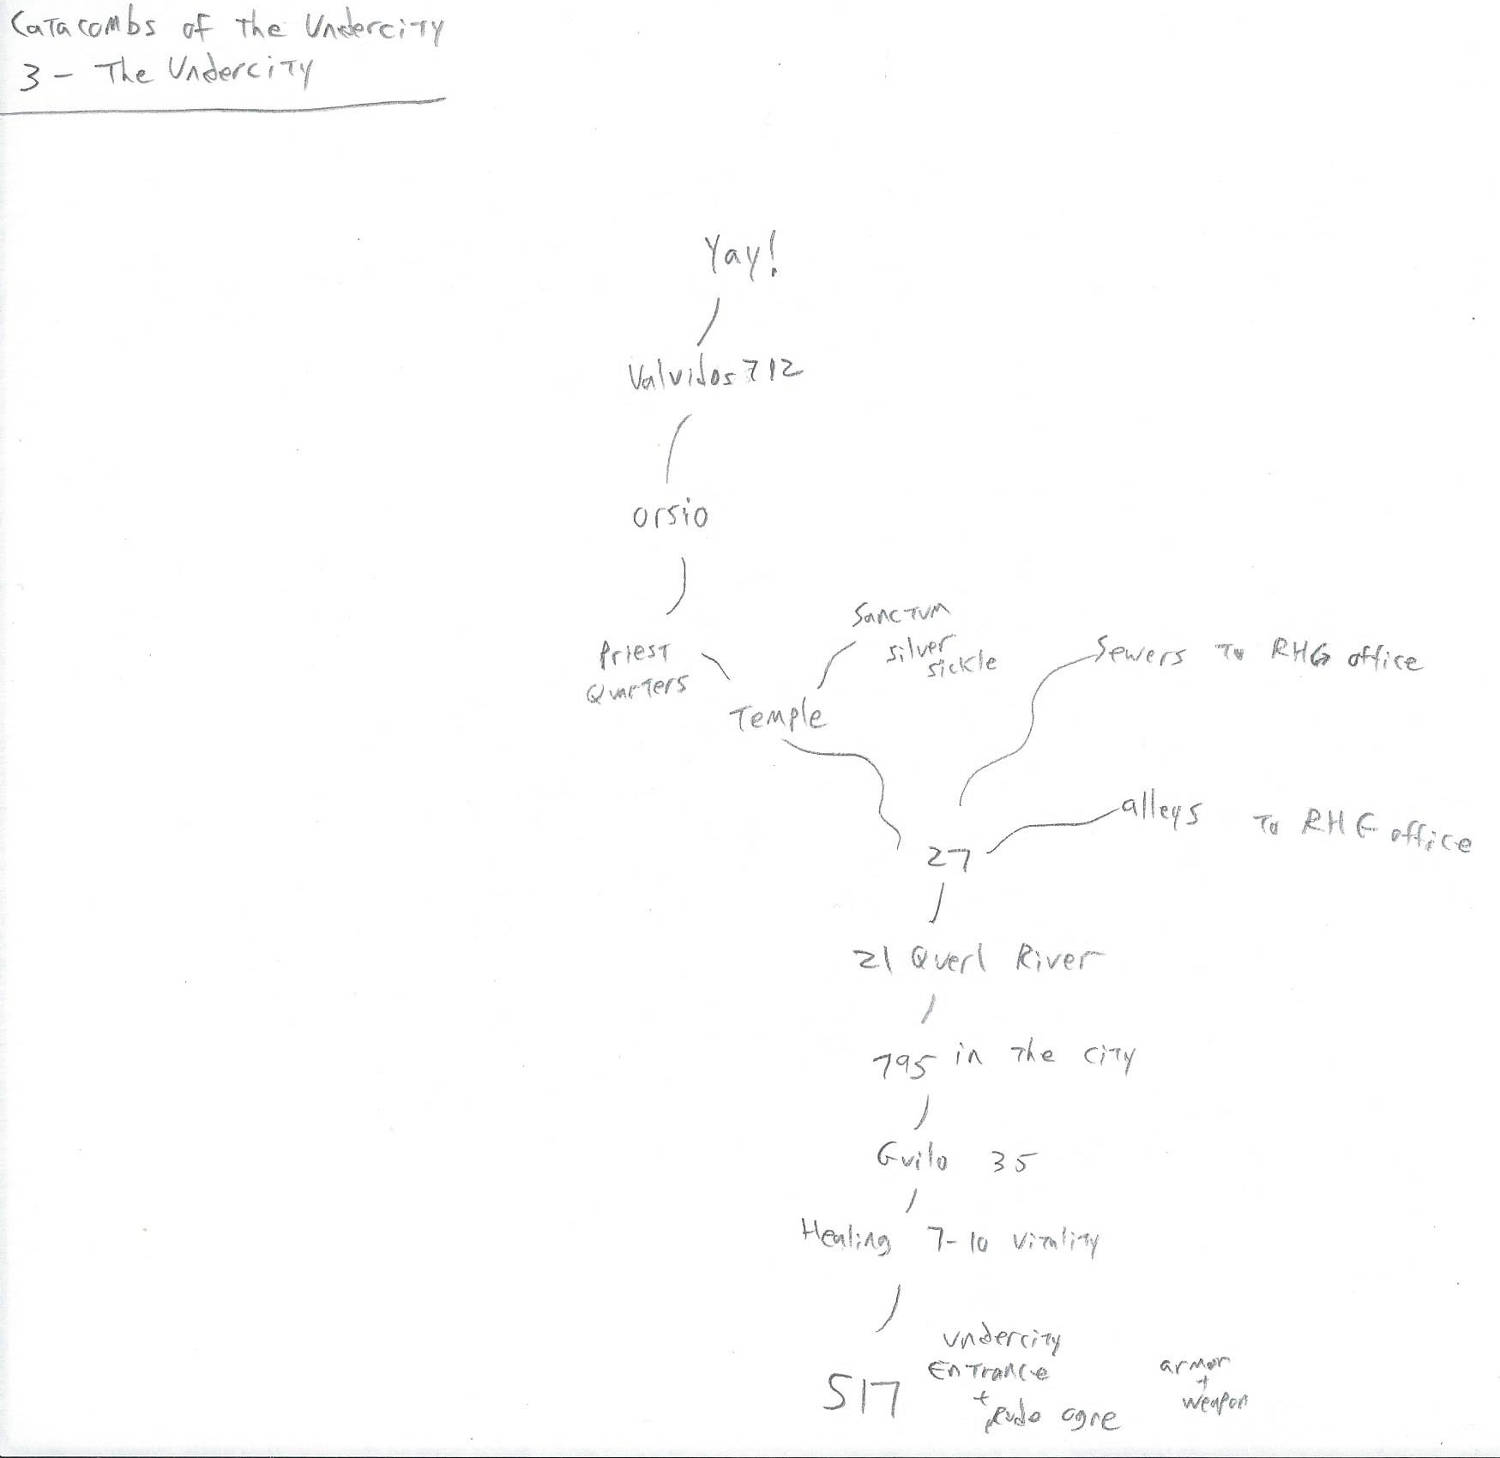 Catacombs of the Undercity
3 - The Undercity
Yay!
Valvidos 712
Orsio
Sanctum
silver
sickle
Sewers To RHG office
Priest
Quarters
Temple
alleys To RHG office
27
21 Querl River
795 in the city
Guilo 35
Healing 7-10 vitality
Undercity
Entrance
+
rude ogre
armor
+
weapon
517